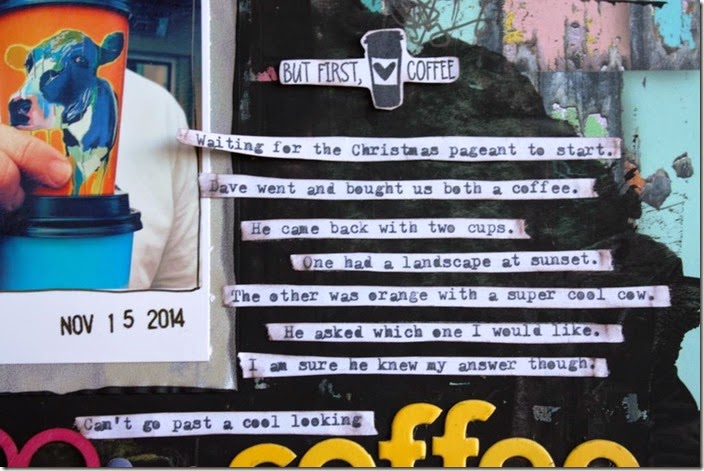 BUT FIRST, COFFEE
Waiting for the Christmas pageant to start.
Dave went and bought us both a coffee.
He came back with two cups.
One had a landscape at sunset.
The other was orange with a super cool cow.
He asked which one I would like.
I am sure he knew my answer though.
NOV 15 2014
Can't go past a cool looking
coffee